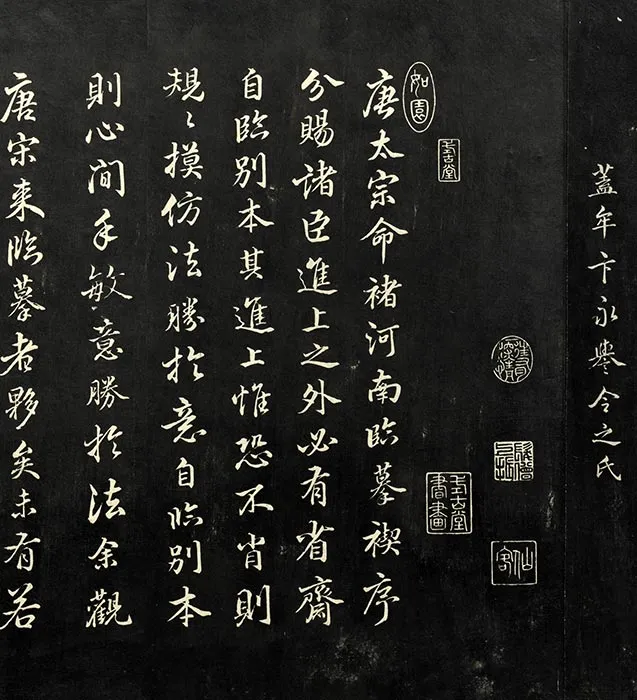 蓋牟卞永譽令之氏
仙客
如園
式古堂
式古堂書畫
唐太宗命褚河南臨摹禊序
分賜諸臣進上之外必有省齋
自臨別本其進上惟恐不肖則
規〻摸仿法勝於意自臨別本
則心間手敏意勝於法余觀
唐宋來臨摹者夥矣未有若